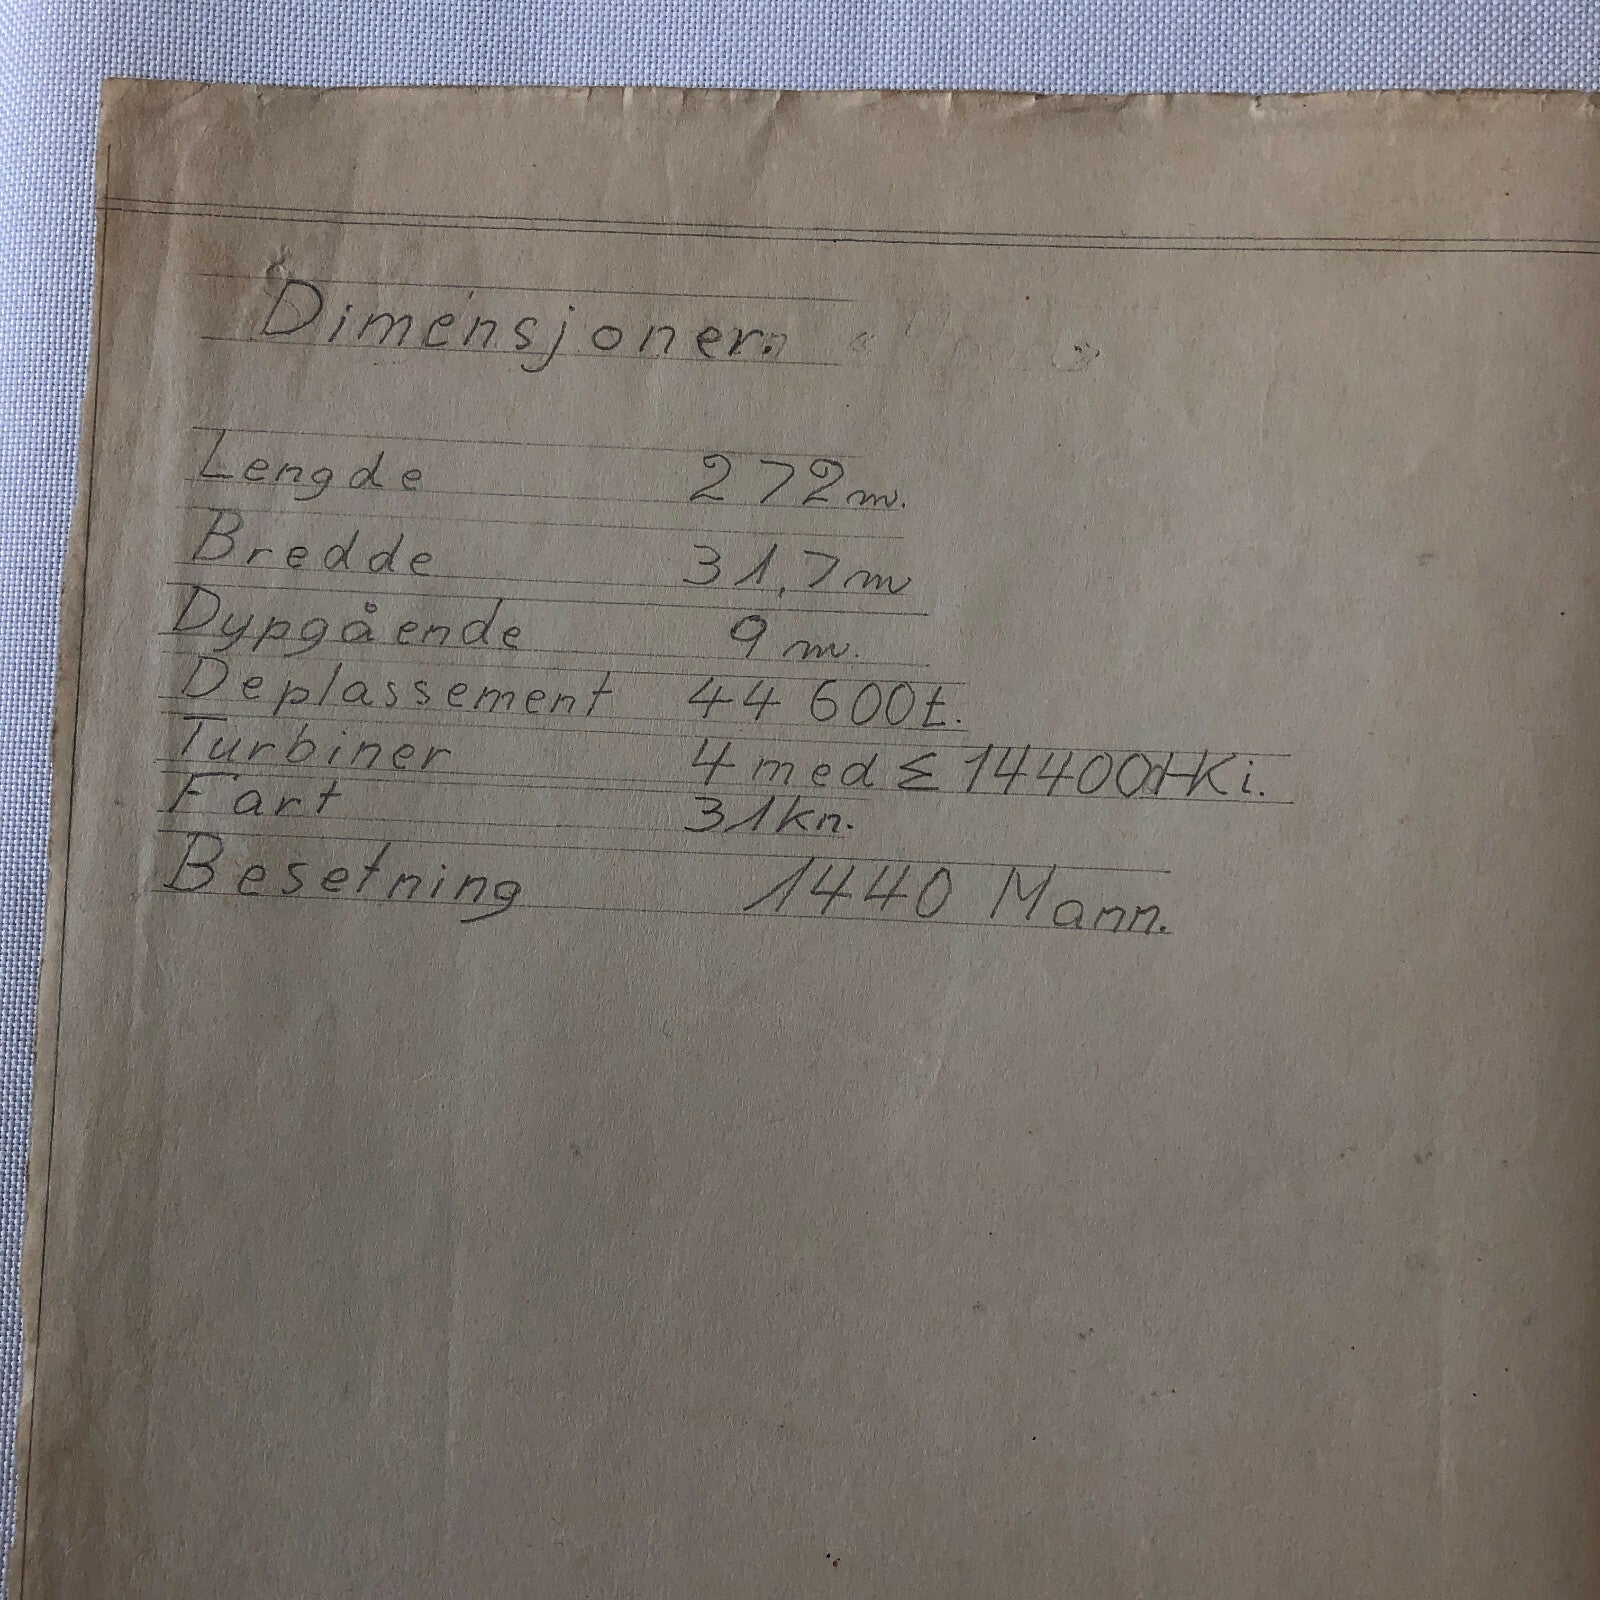 Dimensjoner.
Lengde 272 m.
Bredde 31,7 m
Dypgående 9 m.
Deplassement 44 600t.
Turbiner 4 med Σ 144000HKi.
Fart 31kn.
Besetning 1440 Mann.